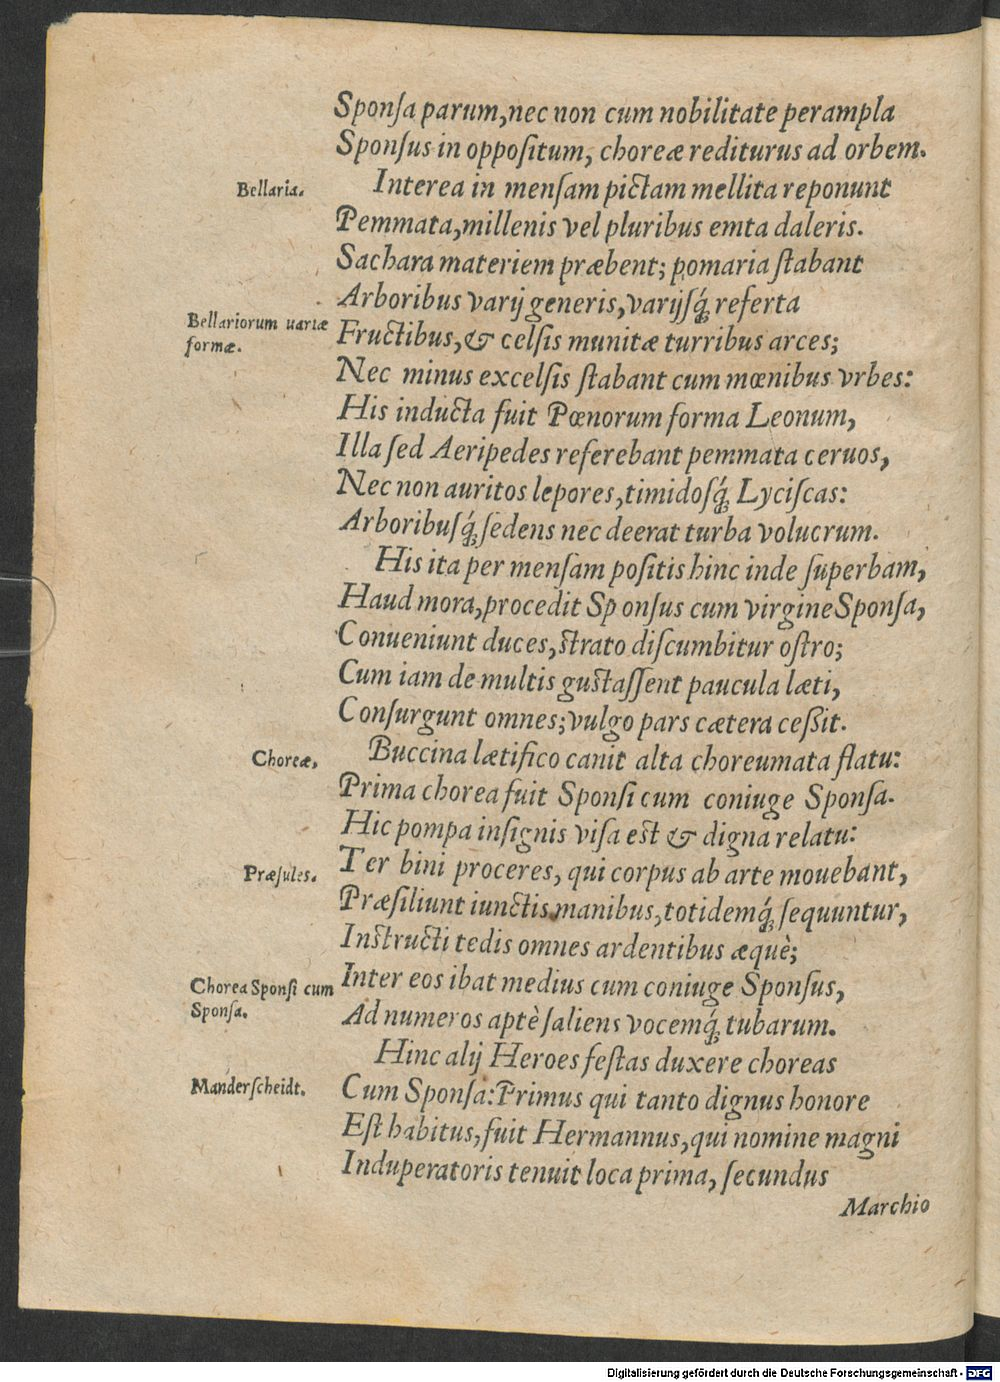 Sponſa parum, nec non cum nobilitate perampla
Sponſus in oppoſitum, choreæ rediturus ad orbem.
Bellaria.
Interea in menſam pictam mellita reponunt
Pemmata, millenis vel pluribus emta daleris.
Sachara materiem præbent; pomaria ſtabant
Arboribus varij generis, varijsq́; referta
Bellariorum uariæ
formæ.
Fructibus, & celſis munitæ turribus arces;
Nec minus excelſis ſtabant cum mœnibus vrbes:
His inducta fuit Pœnorum forma Leonum,
Illa ſed Aeripedes referebant pemmata ceruos,
Nec non auritos lepores, timidosq́; Lyciſcas:
Arboribusq́; ſedens nec deerat turba volucrum.
His ita per menſam poſitis hinc inde ſuperbam,
Haud mora, procedit Sponſus cum virgine Sponſa,
Conueniunt duces, ſtrato diſcumbitur oſtro;
Cum iam de multis guſtaſſent paucula læti,
Conſurgunt omnes; vulgo pars cætera ceßit.
Choreæ.
Buccina lætifico canit alta choreumata flatu:
Prima chorea fuit Sponſi cum coniuge Sponſa.
Hic pompa inſignis viſa eſt & digna relatu:
Præſules.
Ter bini proceres, qui corpus ab arte mouebant,
Præſiliunt iunctis manibus, totidemq́; ſequuntur,
Inſtructi tedis omnes ardentibus æquè;
Chorea Sponſi cum
Sponſa.
Inter eos ibat medius cum coniuge Sponſus,
Ad numeros aptè ſaliens vocemq́; tubarum.
Hinc alij Heroes feſtas duxere choreas
Manderſcheidt.
Cum Sponſa: Primus qui tanto dignus honore
Eſt habitus, fuit Hermannus, qui nomine magni
Induperatoris tenuit loca prima, ſecundus
Marchio
Digitalisierung gefördert durch die Deutsche Forschungsgemeinschaft - DFG